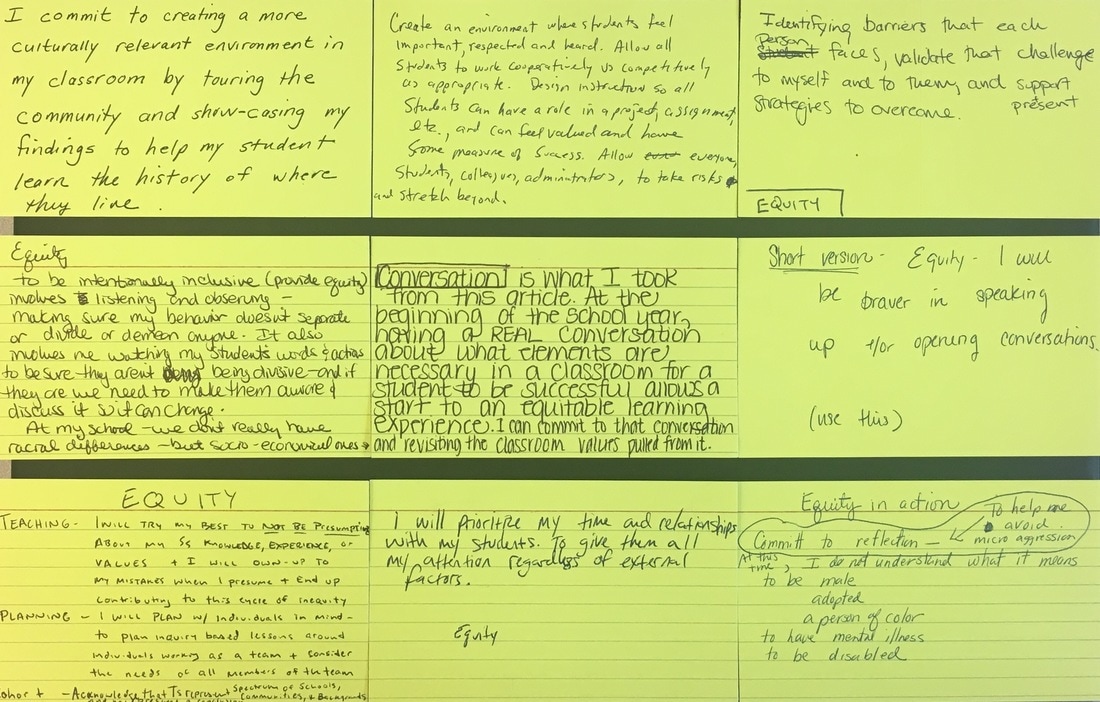 I commit to creating a more
culturally relevant environment in
my classroom by touring the
community and show-casing my
findings to help my student
learn the history of where
they live.
Create an environment where students feel
important, respected and heard. Allow all
students to work cooperatively vs competitively
as appropriate. Design instruction so all
students can have a role in a project, assignment,
etc., and can feel valued and have
some measure of success. Allow everyone,
students, colleagues, administrators, to take risks
and stretch beyond.
Identifying barriers that each
person
faces, validate that challenge
to myself and to them, and support
present
strategies to overcome.
EQUITY
Equity
to be intentionally inclusive (provide equity)
involves listening and observing -
making sure my behavior doesn't separate
or divide or demean anyone. It also
involves me watching my students words & actions
to be sure they arent being divisive - and if
they are we need to make them aware &
discuss it so it can change.
At my school - we don't really have
racial differences - but socio-economical ones →
Conversation is what I took
from this article. At the
beginning of the school year,
having a REAL conversation
about what elements are
necessary in a classroom for a
student to be successful allows a
start to an equitable learning
experience. I can commit to that conversation
and revisiting the classroom values pulled from it.
Short version - Equity - I will
be braver in speaking
up +/or opening conversations.
(use this)
EQUITY
TEACHING - I WILL TRY MY BEST TO NOT BE PRESUMPTIVE
ABOUT MY Ss KNOWLEDGE, EXPERIENCE, OR
VALUES + I WILL OWN-UP TO
MY MISTAKES WHEN I PRESUME + END UP
CONTRIBUTING TO THIS CYCLE OF INEQUITY
PLANNING - I WILL PLAN W/ INDIVIDUALS IN MIND -
to plan inquiry based lessons around
individuals working as a team + consider
the needs of all members of the team
- Acknowledge that Ts represent Spectrum of Schools,
Communities, & Backgrounds
i will prioritize my time and relationships
with my students. To give them all
my attention regardless of external
factors.
Equity
Equity in action
To help me
avoid
micro aggression
Committ to reflection -
At this
time, I do not understand what it means
to be male
adopted
a person of color
to have mental illness
to be disabled